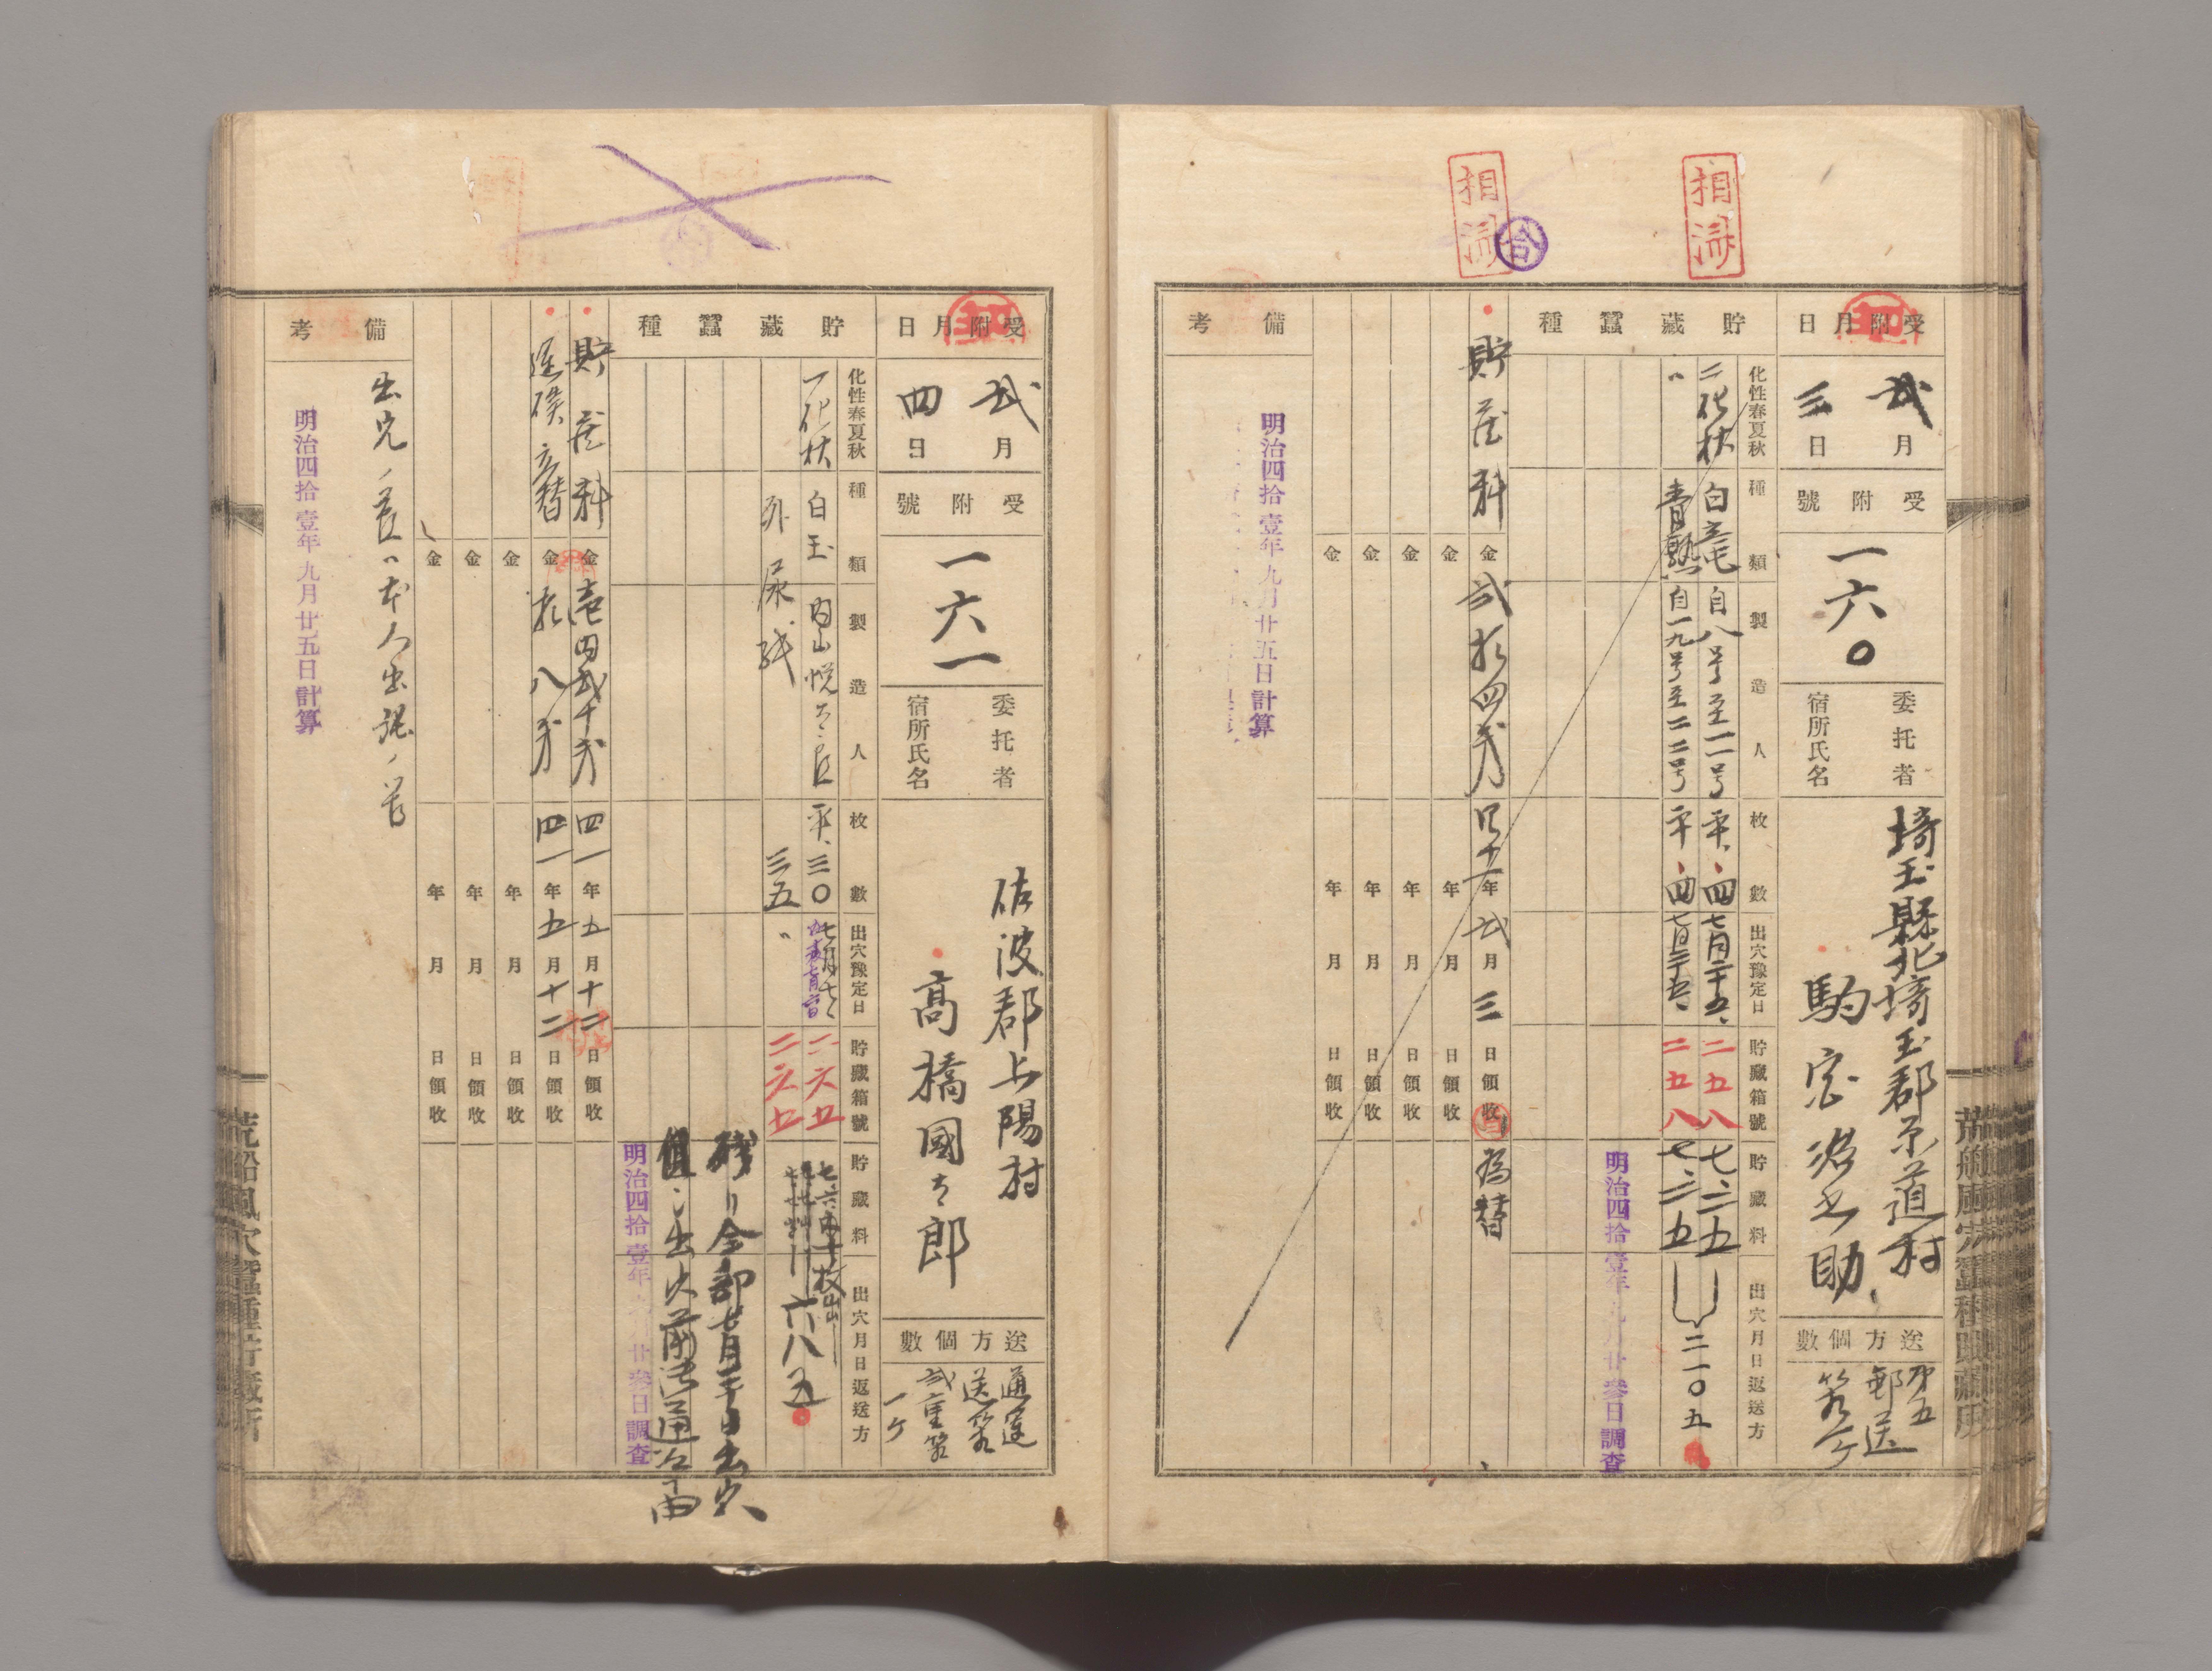 相済
相済
拾
受附月日
弐月
三日
受附號
一六〇
委托者
宿所氏名
埼玉縣北埼玉郡京道村
駒宮治之助
送方個數
郵送
貯藏蠶種
化性春夏秋
種類
製造人
枚數
出穴豫定日
貯藏箱號
貯藏料
出穴月日返送方
二化秋
白竜
自八号至一一号
平、四
七月二十五、
二五八
七、二五
〃
青熟
自一九号至二二号
平、四
二五八
七、二五
二一〇五
明治四拾壹年九月廿參日調査
貯蔵料
金弐拾四銭
四十一年弐月三日領收
為替
金 年 月 日領收
金 年 月 日領收
金 年 月 日領收
金 年 月 日領收
備考
明治四拾壹年九月廿五日計算
荒船風穴蠶種貯藏所
受附月日
弐月
四日
受附號
一六一
委托者
宿所氏名
佐波郡上陽村
高橋國太郎
送方個數
通運
送箱
弐重箱
一ケ
貯藏蠶種
化性春夏秋
種類
製造人
枚數
出穴豫定日
貯藏箱號
貯藏料
出穴月日返送方
一化秋
白玉
内山悦太郎
平、三〇
二六五
外
尿紙
三五
〃
二六五
六八五
残リ全部七月二十日出穴
明治四拾壹年九月廿參日調査
貯蔵料
金壱円弐十銭
四一年五月十二日領收
運搬立替
金拾八銭
四一年五月十二日領收
金 年 月 日領收
金 年 月 日領收
金 年 月 日領收
備考
明治四拾壹年九月廿五日計算
荒船風穴蠶種貯藏所